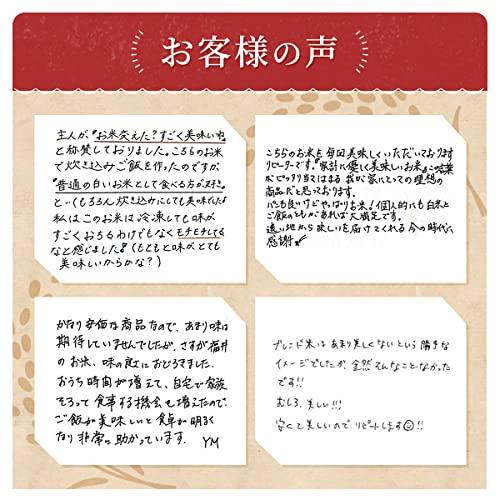 お客様の声
主人が、「お米変えた？すごく美味いね」
と称賛しておりました。こちらのお米
で炊き込みご飯を作ったのですが、
「普通の白いお米として食べる方が好き」
と…(もちろん炊き込みにしても美味でした)
私はこのお米は冷凍しても味が
すごくおちるわけでもなくモチモチしてる
なと感じました！(もともと味が、とても
美味しいからかな？)
こちらのお米を毎回美味しくいただいております
リピーターです。「家計に優しく美味しいお米」
がピッタリ当てはまる我が家にとっての理想の
商品だと思っております。
パンも良いけどやっぱりお米！個人的にも白米と
ご飯のともがあれば大満足です。
遠い地から欲しいを届けてくれる今の時代に
感謝
かなり安価な商品なので、あまり味は
期待していませんでしたが、さすが福井
のお米、味の良さにおどろきました。
おうち時間が増えて、自宅で家族
そろって食事する機会も増えたので、
ご飯が美味しいと食卓が明るく
なり非常に助かっています。 YM
ブレンド米はあまり美しくないという勝手な
イメージでしたが、全然そんなことなかった
です!!
むしろ、美しい!!!
安くて美しいので、リピートします☺!!